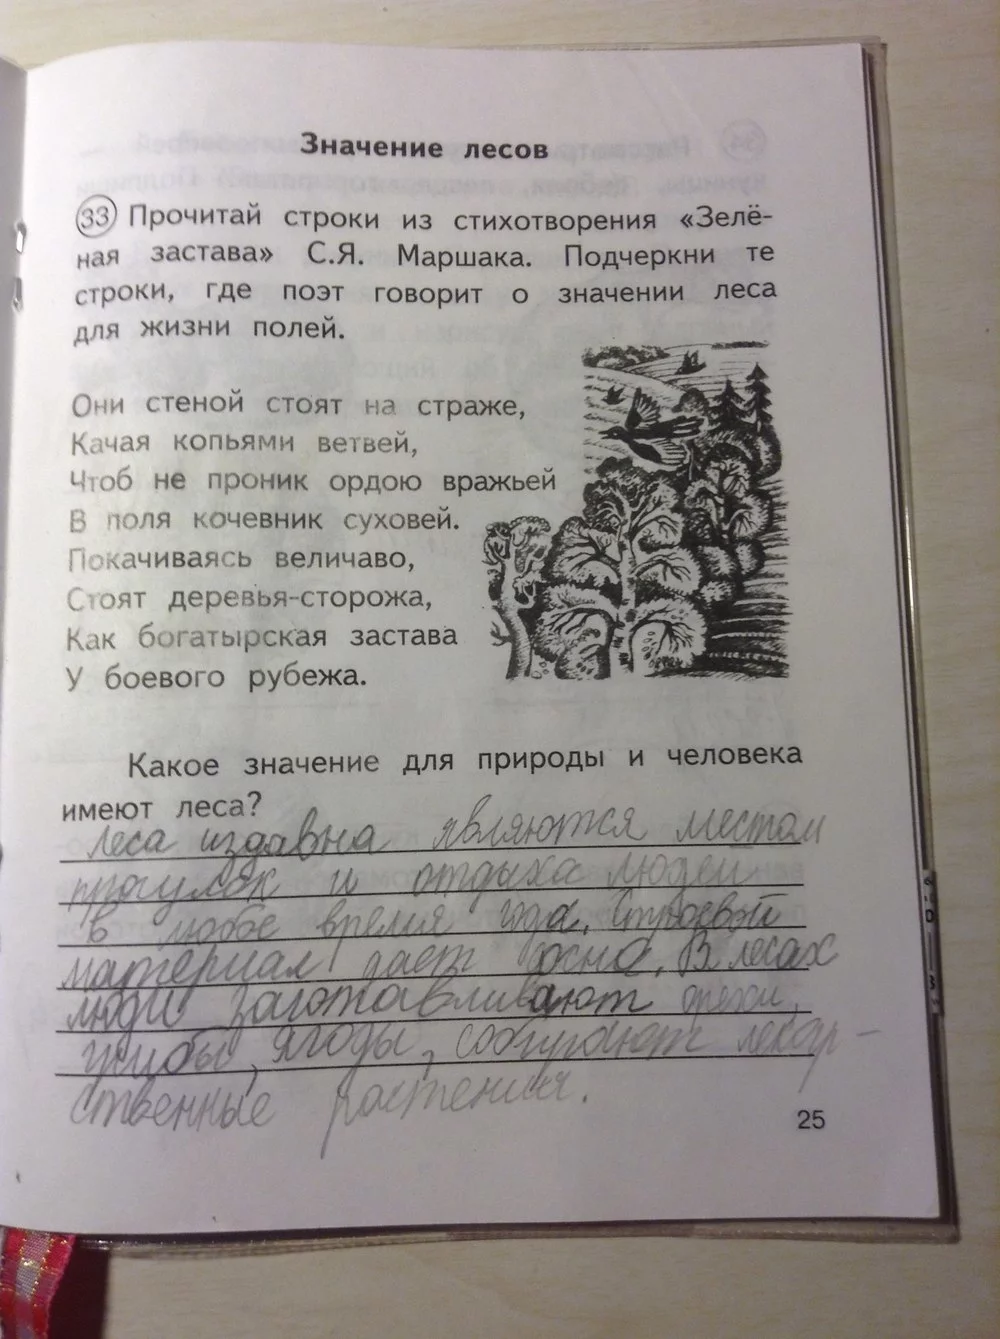 Значение лесов
33 Прочитай строки из стихотворения «Зелё-
ная застава» С.Я. Маршака. Подчеркни те
строки, где поэт говорит о значении леса
для жизни полей.
Они стеной стоят на страже,
Качая копьями ветвей,
Чтоб не проник ордою вражьей
В поля кочевник суховей.
Покачиваясь величаво,
Стоят деревья-сторожа,
Как богатырская застава
У боевого рубежа.
Какое значение для природы и человека
имеют леса?
Леса издавна являются местом
прогулок и отдыха людей
в любое время года. Строевой
материал дает сосна. В лесах
люди заготавливают орехи,
грибы, ягоды, собирают лекар-
ственные растения.
25